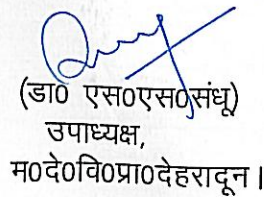 (डा0 एस0एस0संधू)
उपाध्यक्ष,
म0दे0वि0प्रा0देहरादून।